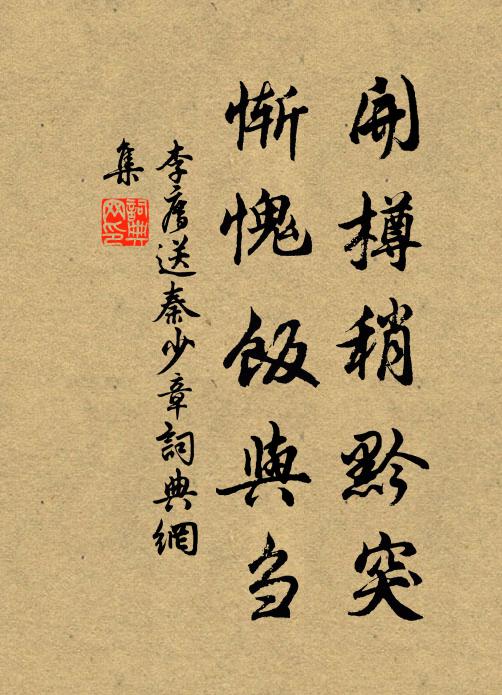 開樽稍黔突
慚愧飯與刍
李廌送秦少章詞典網
集
詞典
网印